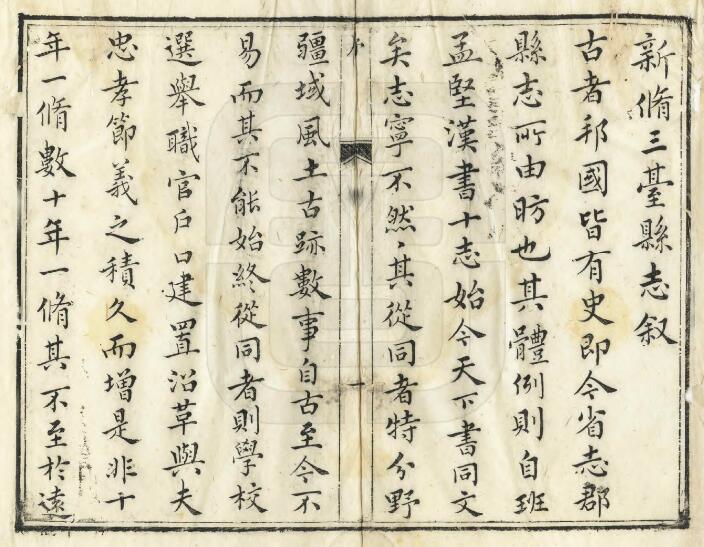 新脩三臺縣志叙
古者邦國皆有史即今省志郡
縣志所由昉也其體例則自班
孟堅漢書十志始今天下書同文
矣志寧不然其從同者特分野
序
一
疆域風土古跡數事自古至今不
易而其不能始終從同者則學校
選舉職官戶口建置沿革與夫
忠孝節義之積久而增是非十
年一脩數十年一脩其不至於遠